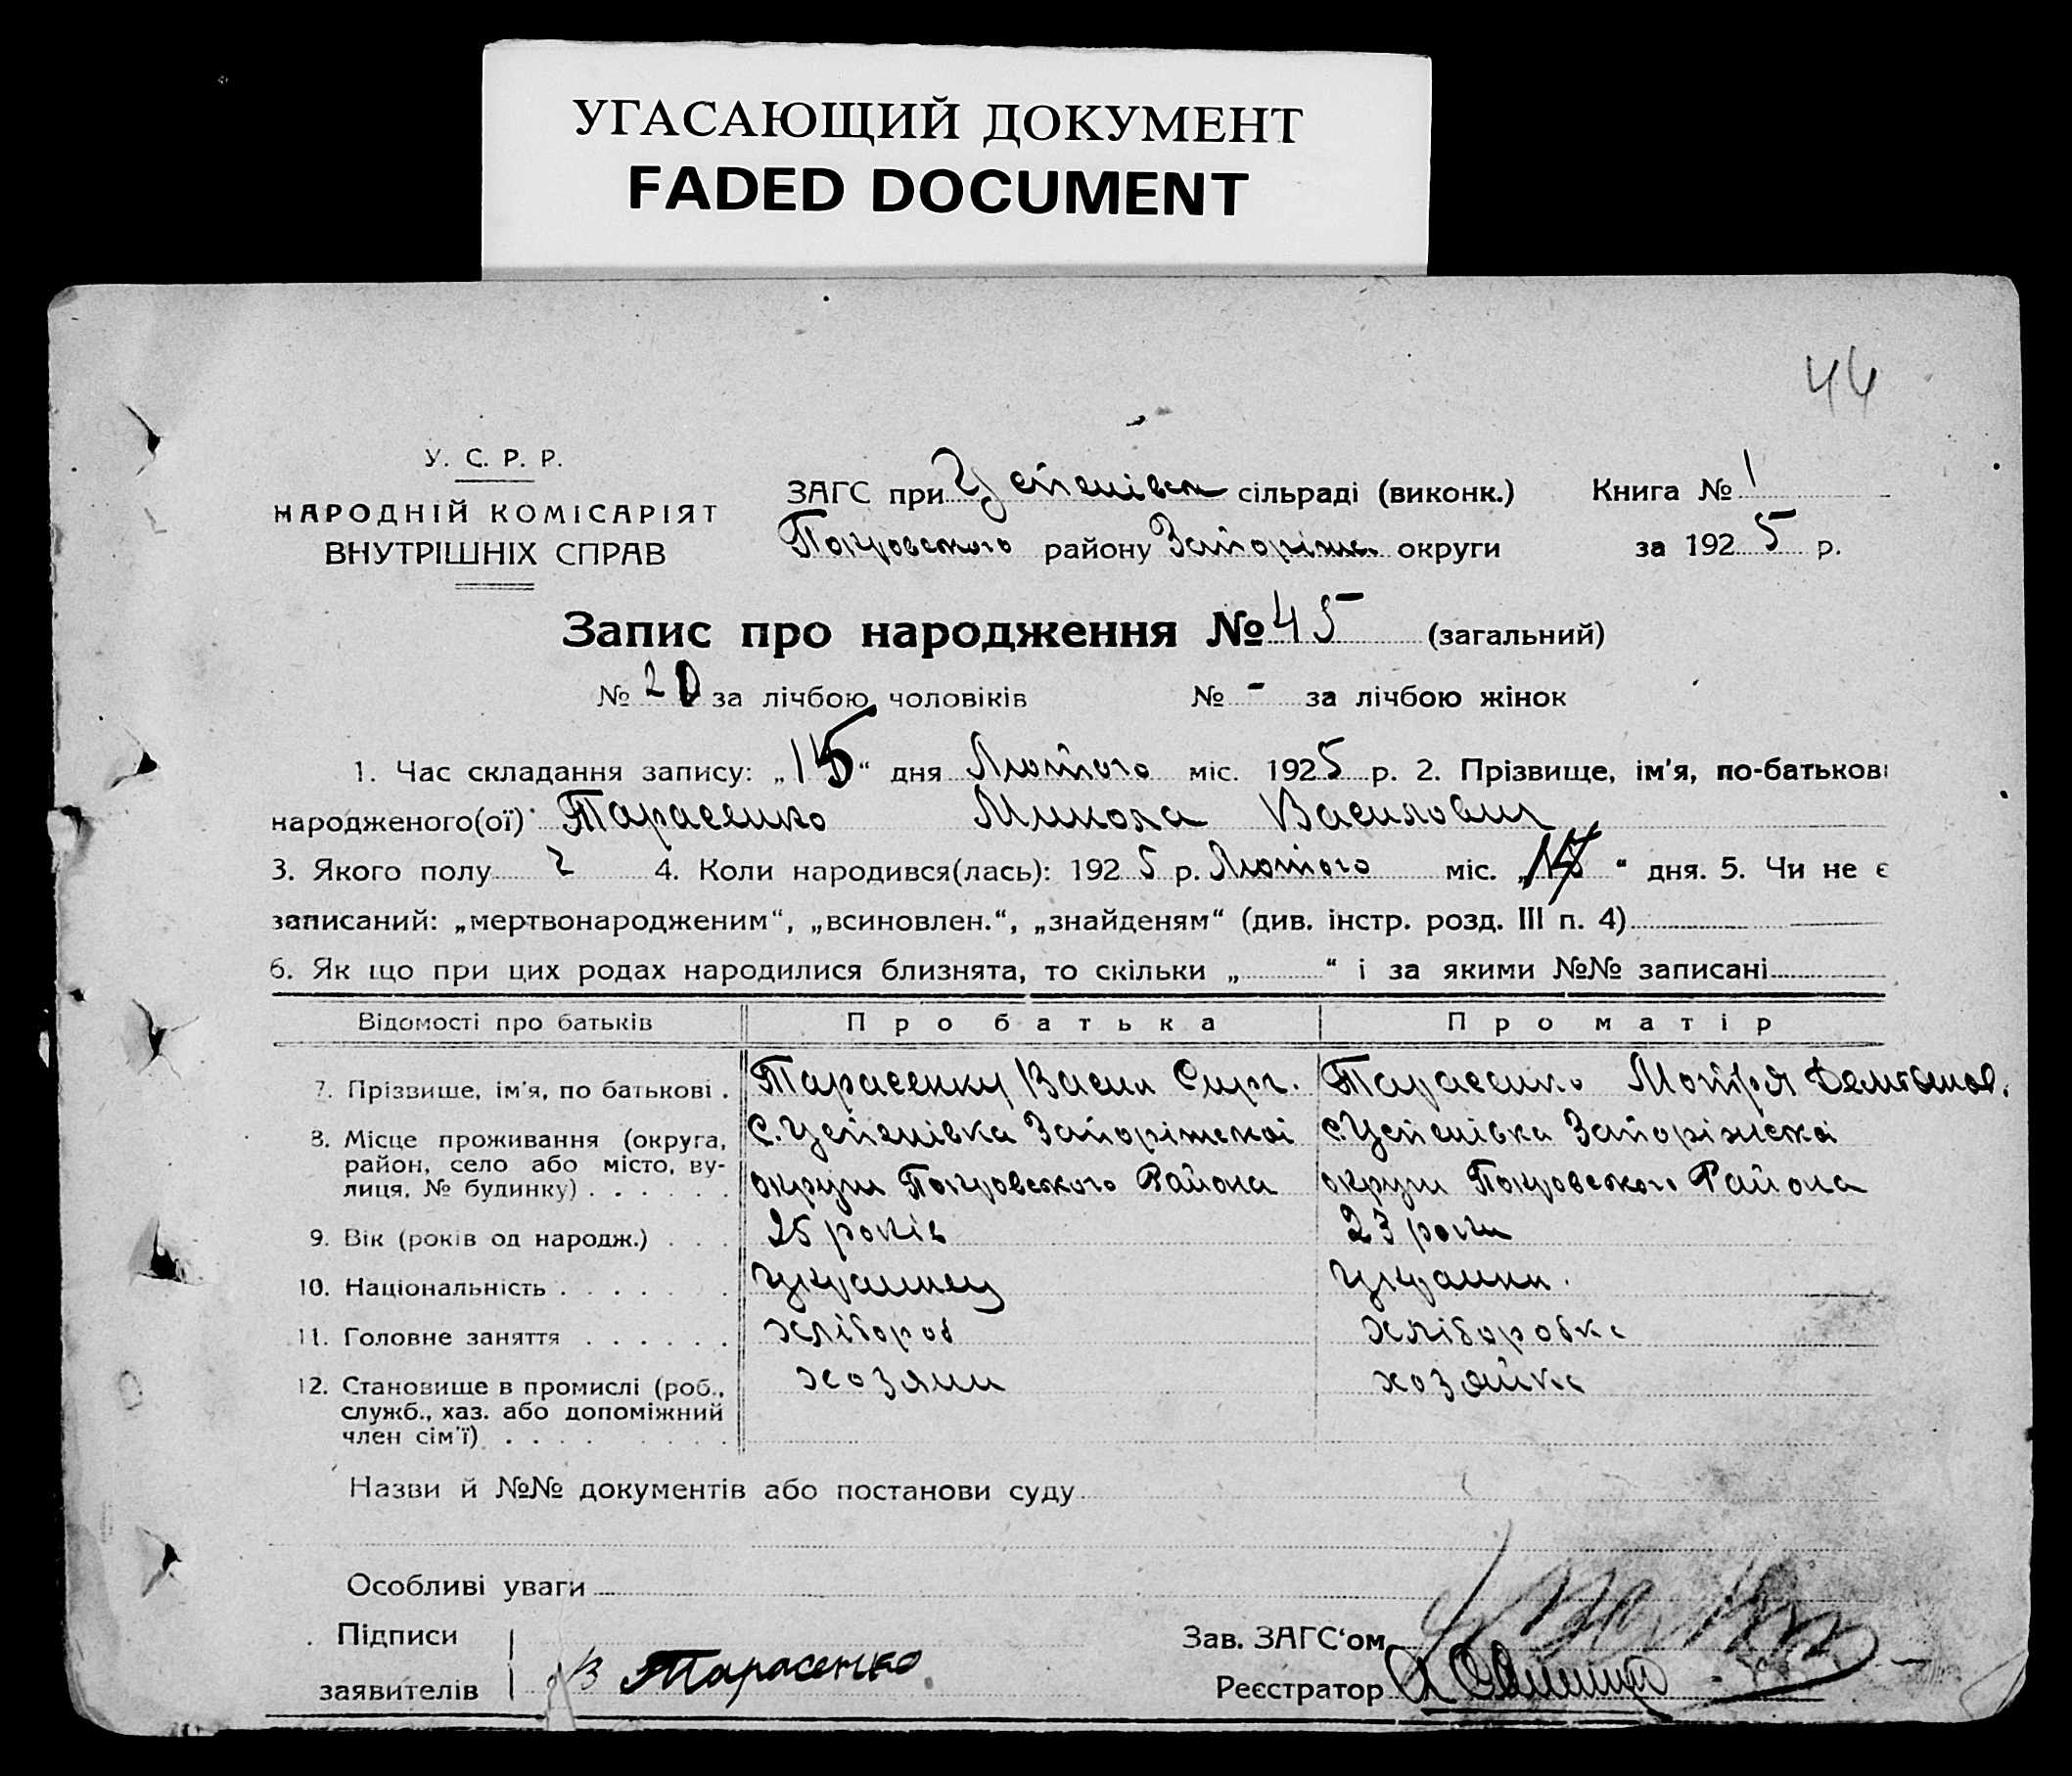 УГАСАЮЩИЙ ДОКУМЕНТ
FADED DOCUMENT
44
У. С. Р. Р.
НАРОДНІЙ КОМІСАРІЯТ
ВНУТРІШНІХ СПРАВ
ЗАГС при Успенівск сільраді (виконк.)
Покровського району Запоріжс. округи
Книга № 1
за 1925 р.
Запис про народження № 45 (загальний)
№ 20 за лічбою чоловіків № - за лічбою жінок
1. Час складання запису: „15“ дня Лютого міс. 1925 р. 2. Прізвище, ім'я, по-батькові
народженого(ої) Тарасенко Микола Василович
3. Якого полу ч 4. Коли народився(лась): 1925 р. Лютого міс. „ “ дня. 5. Чи не є
записаний: „мертвонародженим“, „всиновлен.“, „знайденям“ (див. інстр. розд. III п. 4)
6. Як що при цих родах народилися близнята, то скільки „ “ і за якими №№ записані
Відомості про батьків Про батька Про матір
7. Прізвище, ім'я, по батькові . Тарасенку Васил Серг. Тарасенко Мотря
8. Місце проживання (округа, район, село або місто, вулиця, № будинку) . . . . . .
с. Успенівка Запоріжскоі с. Успенівка Запоріжскоі
округи Покровського Района округи Покровського Района
9. Вік (років од народж.) . . . 25 років 23 роки
10. Національність . . . . . . українец українк.
11. Головне заняття . . . . . . хлібороб хліборобка
12. Становище в промислі (роб., служб., хаз. або допоміжний член сім'ї) . . . .
хозяин хозяйка
Назви й №№ документів або постанови суду
Особливі уваги
Підписи
заявителів В Тарасенко
Зав. ЗАГС‘ом
Реєстратор